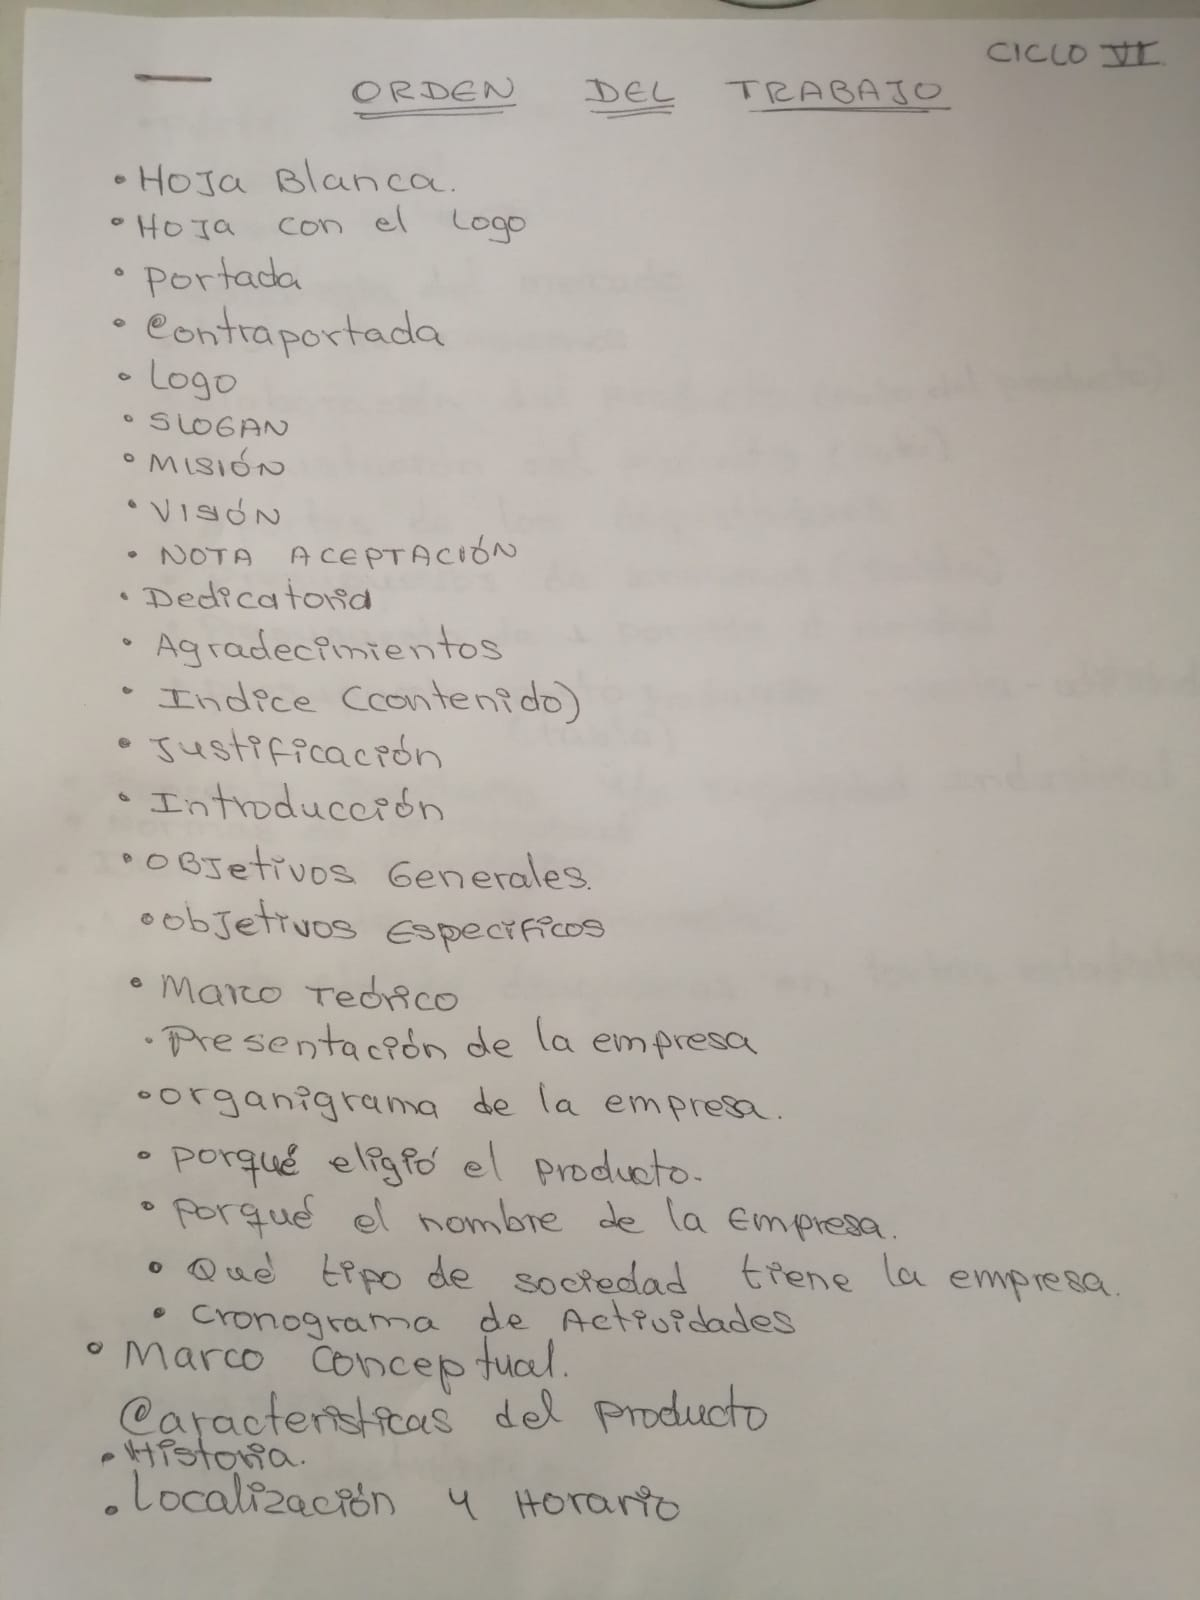 CICLO VI
ORDEN DEL TRABAJO
• Hoja Blanca.
• Hoja con el Logo
• Portada
• Contraportada
• Logo
• SLOGAN
• MISIÓN
• VISIÓN
• NOTA ACEPTACIÓN
• Dedicatoria
• Agradecimientos
• Indice (contenido)
• Justificación
• Introducción
• Objetivos Generales.
• Objetivos Especificos
• Marco Teórico
• Presentación de la empresa
• organigrama de la empresa.
• porqué eligió el producto.
• porqué el nombre de la Empresa.
• Qué tipo de sociedad tiene la empresa.
• Cronograma de Actividades
• Marco Conceptual.
Caracteristicas del producto
• Historia.
• Localización y Horario